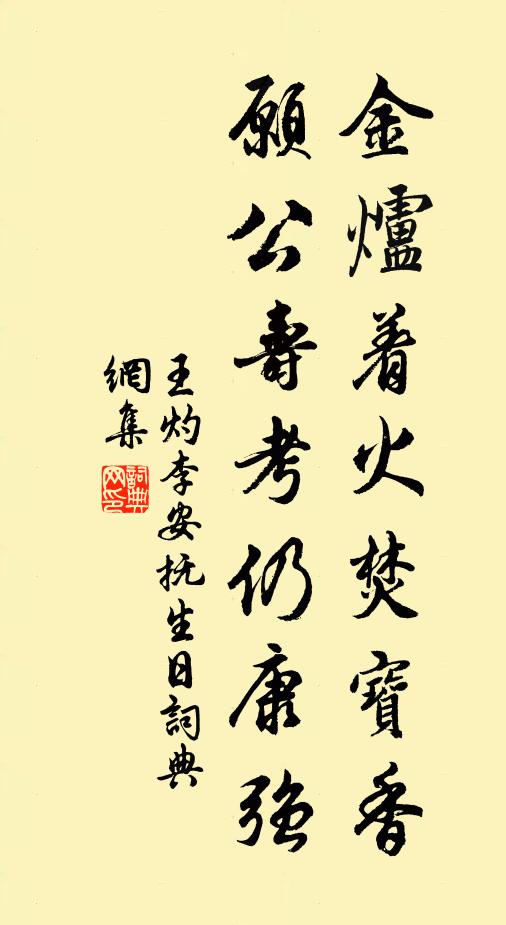 金爐着火焚寶香
願公壽考仍康強
王灼李安抚生日詞典
網集
詞典
网印